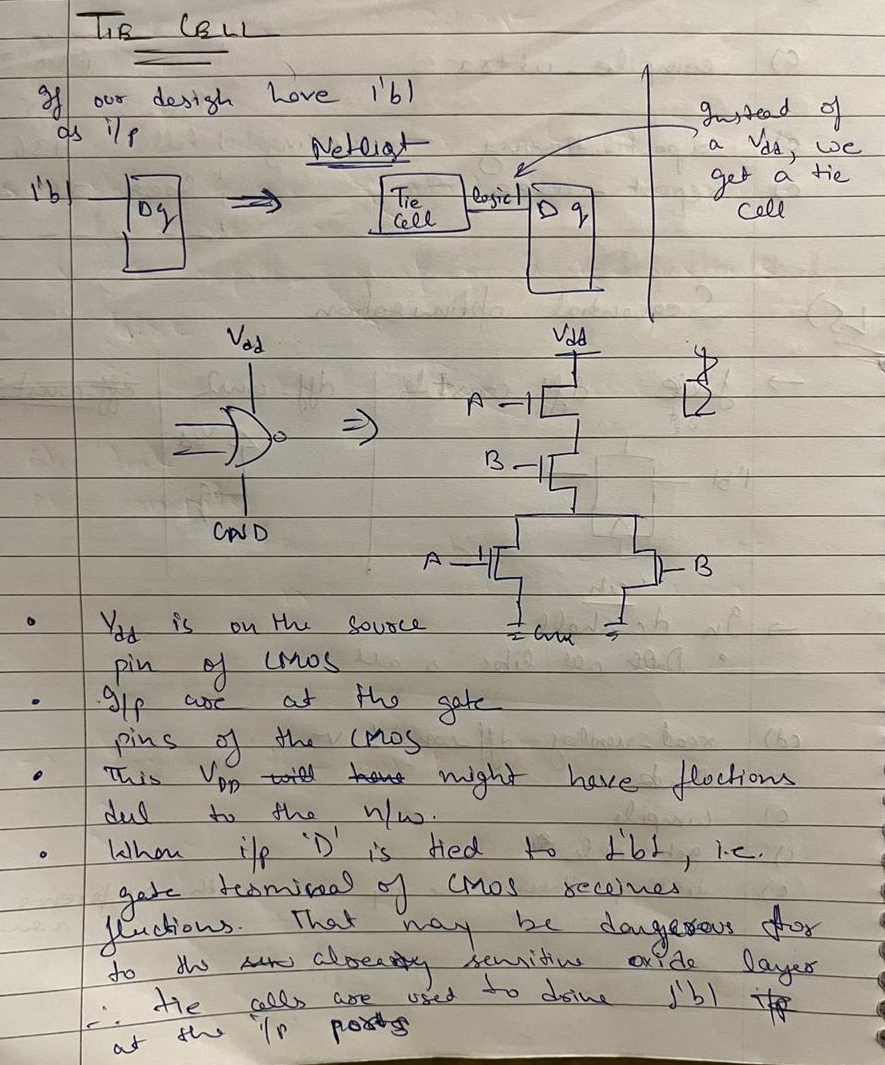 TIE CELL
If our design have 1'b1
as i/p
Netlist
Instead of
a Vdd, we
get a tie
cell
1'b1
D q
⇒
Tie
Cell
logic1
D q
Vdd
GND
⇒
Vdd
A
B
A
B
• Vdd is on the source
pin of CMOS
• I/p are at the gate
pins of the CMOS
• This VDD will have might have fluctions
due to the n/w.
• When i/p 'D' is tied to 1'b1, i.e.
gate terminal of CMOS receives
fluctions. That may be dangerous for
to the already sensitive oxide layer
∴ tie cells are used to drive 1'b1
at the i/p ports